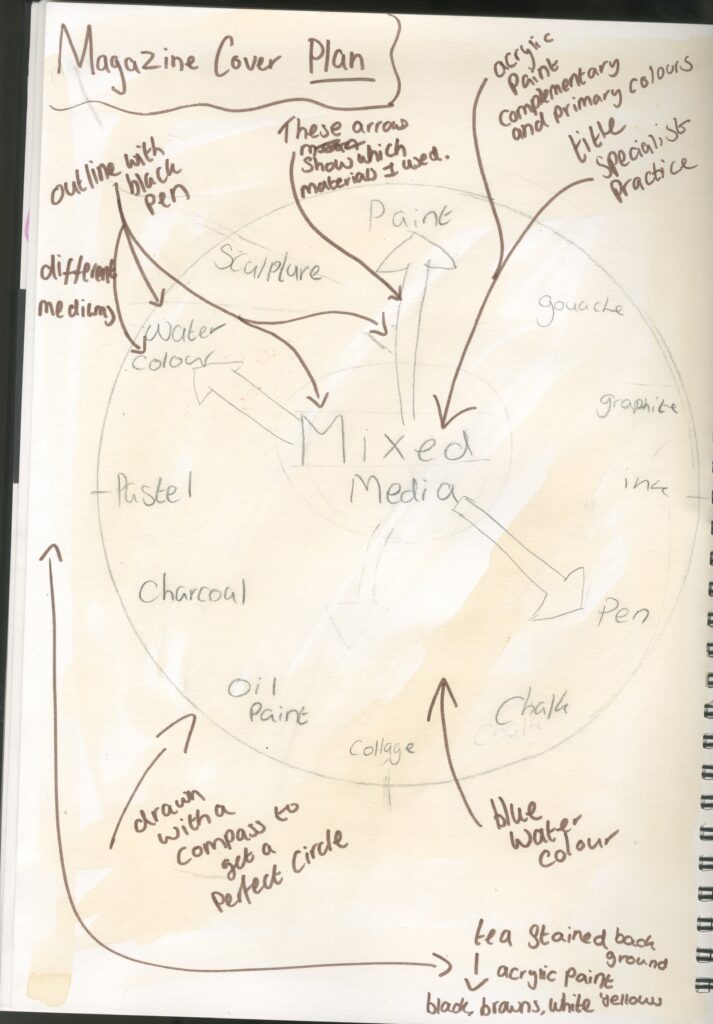 Magazine Cover Plan
acrylic
Paint
complementary
and primary colours
title
specialist
Practice
These arrows
show which
materials I used.
outline with
black
pen
different
mediums
Paint
Sculpture
Water
Colour
gouache
graphite
ink
Mixed
Media
Pastel
Charcoal
Pen
Oil
Paint
Chalk
Chalk
Collage
drawn
with a
compass to
get a
Perfect Circle
blue
water
colour
tea stained back
ground
acrylic paint
black, browns, white yellows